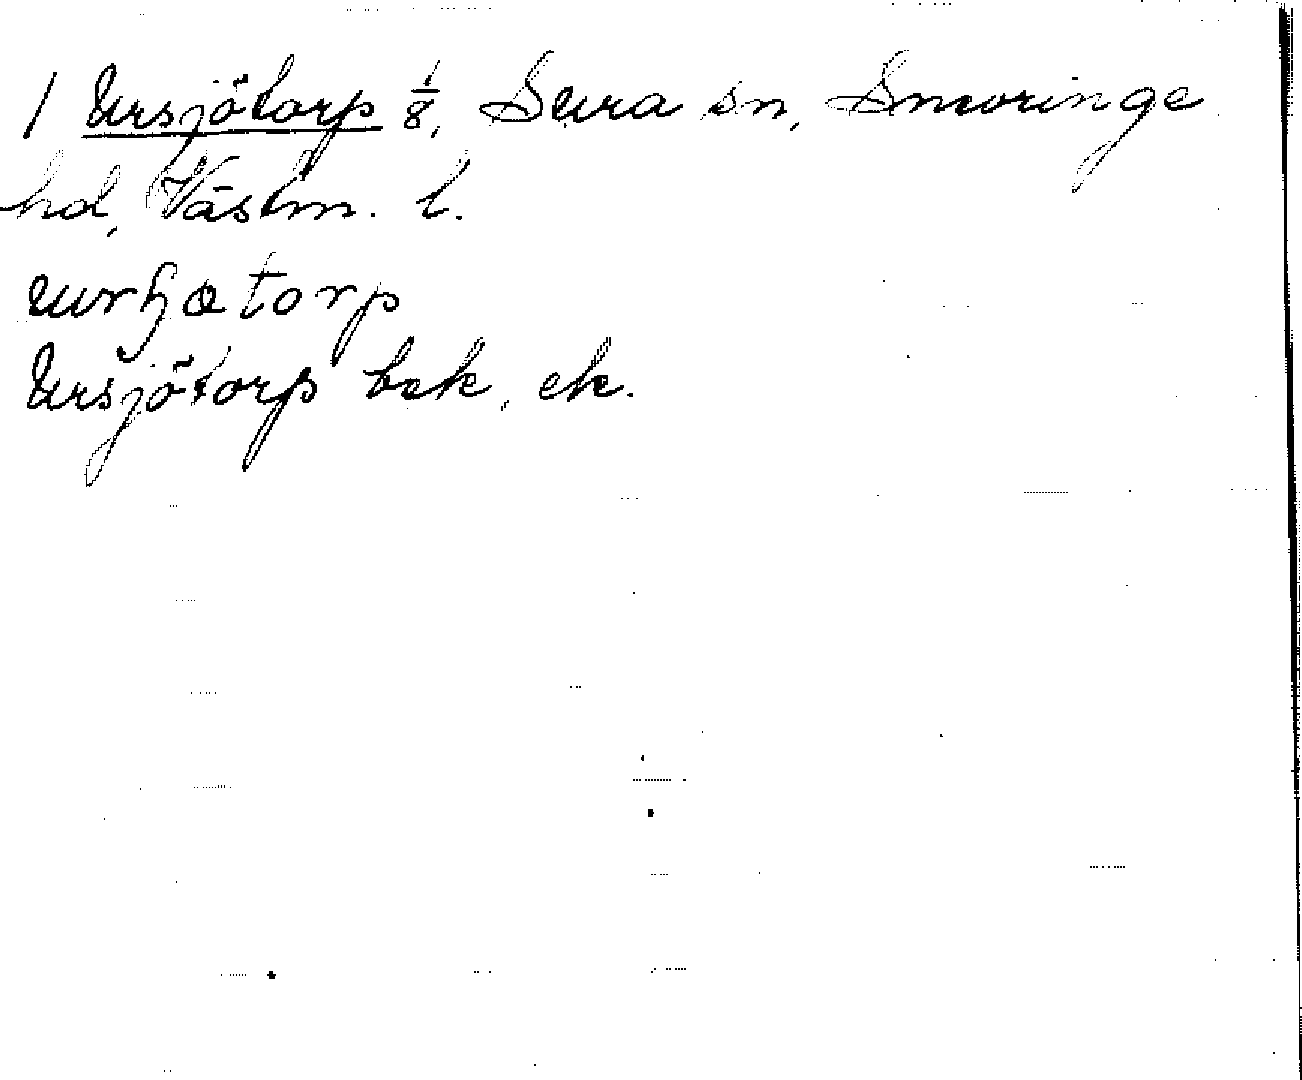 1 Ursjötorp 1/8, Sura sn, Snevringe
hd, Västm. l.
Ursjötorp bek. ek.